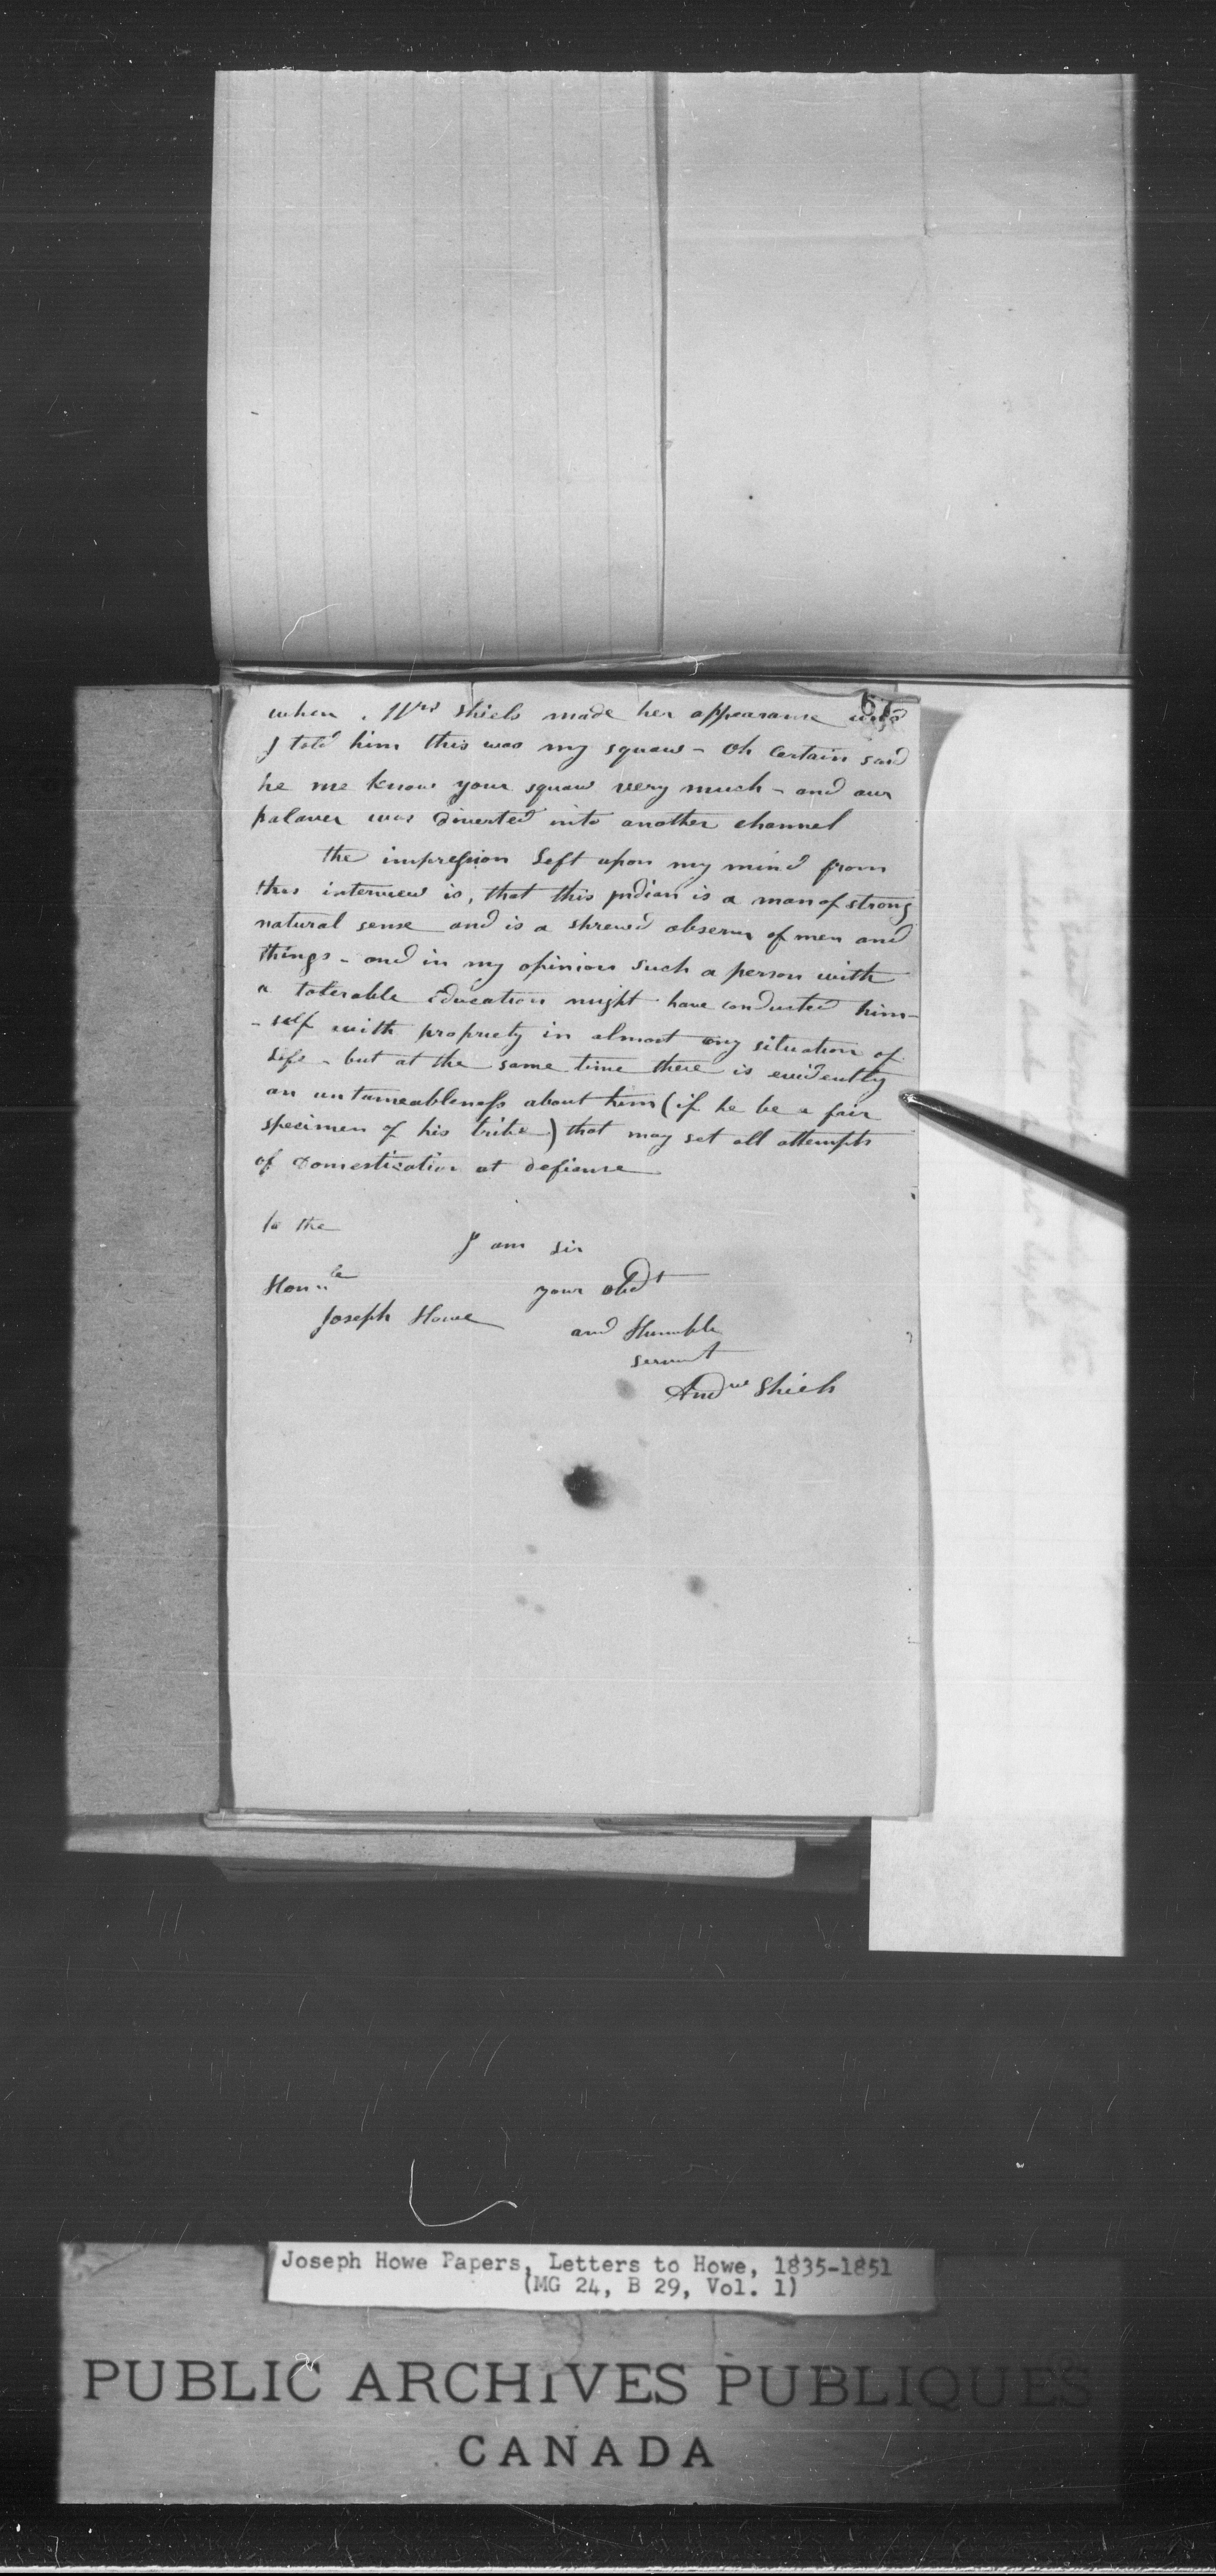 67
when Mrs Shiels made her appearance and
I told him this was my squaw - Oh Certain said
he me know your squaw very much - and our
palaver was diverted into another channel
the impression Left upon my mind from
this interview is, that this Indian is a man of strong
natural sense and is a shrewd observer of men and
things - and in my opinion such a person with
a tolerable Education might have conducted him-
-self with propriety in almost any situation of
Life - but at the same time there is evidently
an untameableness about him (if he be a fair
specimen of his tribe) that may set all attempts
of Domestication at defiance
to the
I am Sir
Honble
your obdt
Joseph Howe
and Humble
servant
Andw Shiels
Joseph Howe Papers, Letters to Howe, 1835-1851
(MG 24, B 29, Vol. 1)
PUBLIC ARCHIVES PUBLIQUES
CANADA